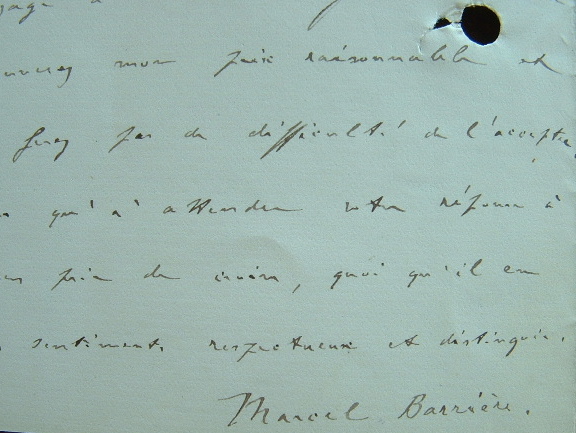 mon prix raisonnable et
ferez pas de difficulté de l'accepter
qu'à attendre votre réponse à
prie de croire, quoi qu'il en
sentiments respectueux et distingués.
Marcel Barrière.